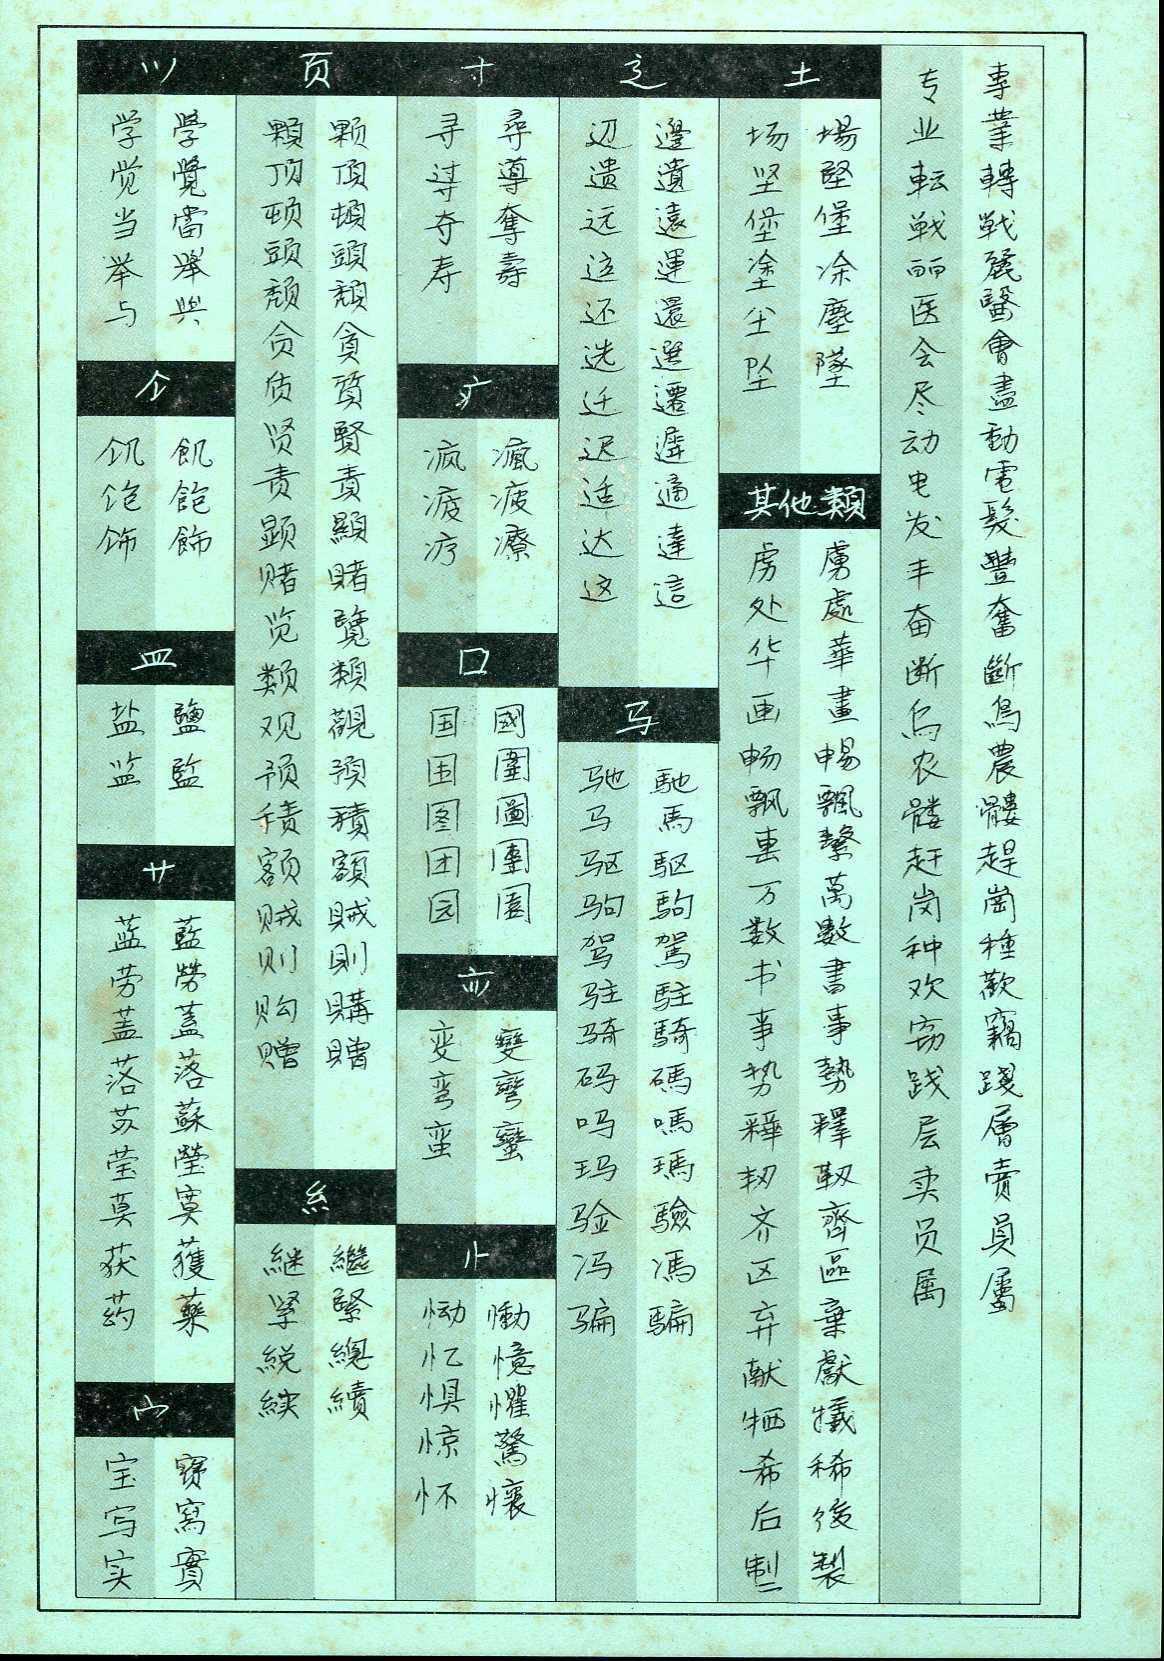 專業轉戰麗醫會盡動電髮豐奮斷烏農髏趕崗種歡竊踐層賣員屬
专业転战丽医会尽动电发丰奋断乌农髅赶岗种欢窃践层卖员属
土
場堅堡涂塵墜
场坚堡塗尘坠
其他類
虜處華畫暢飄繫萬數書事勢釋韌齊區棄獻犧稀後製
虏处华画畅飘万数书事势释韧齐区弃献牺希后制
辶
邊遺遠運還選遷遲適達這
辺遗远还选迁迟适达这
马
馳馬駆駒駕駐騎碼嗎瑪驗馮騙
驰马驱驹驾驻骑码吗玛验冯骗
寸
尋導奪壽
寻夺寿
疒
瘋疲療
疯疲疗
口
國圍圖團園
国围图团园
亦
變彎蠻
变弯蛮
忄
慟憶懼驚懷
恸忆惧惊怀
页
颗頂頓頭頹貪質賢責顯賭覽類觀預積額賊則購贈
顆顶顿頭颓贪质贤责显赌览类观预積额贼则购赠
糹
繼緊總續
継紧続
⺍
學覺當舉與
学觉当举与
飠
飢飽飾
饥饱饰
皿
鹽監
盐监
艹
藍勞蓋落蘇瑩寞獲藥
蓝劳盖落苏莹莫获药
宀
寶寫實
宝写实